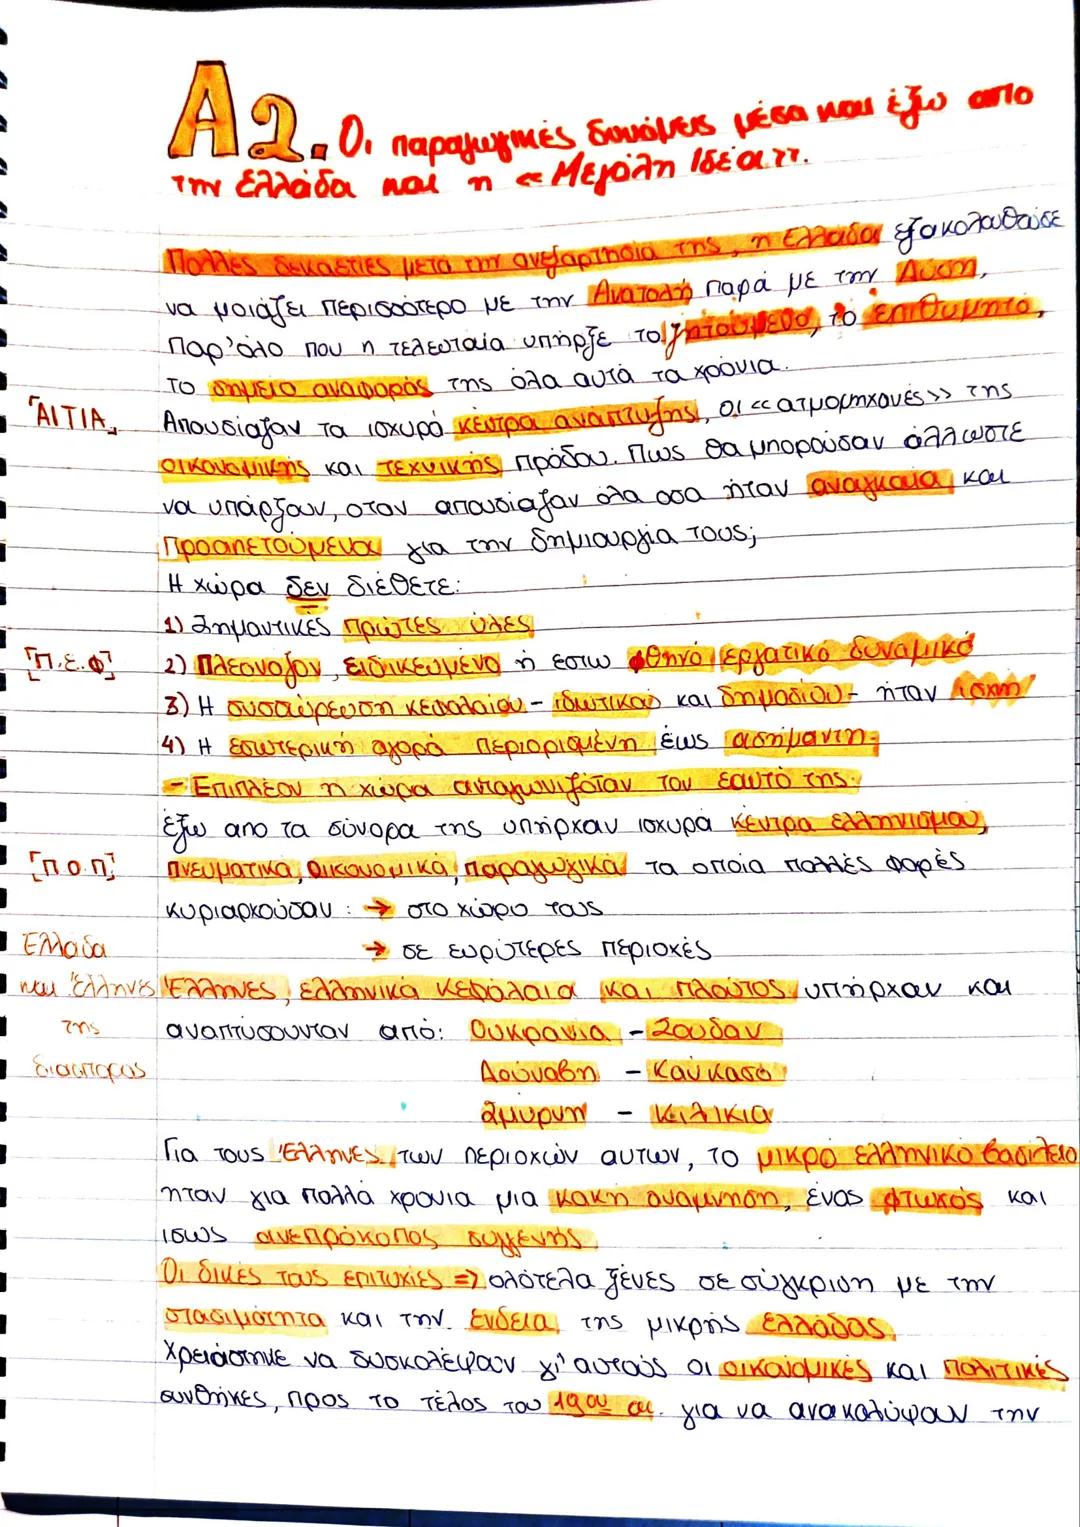 Α2. Οι παραγωγικές δυνάμεις μέσα και έξω απο
την Ελλάδα και η «Μεγάλη Ιδέα».
Πολλές δεκαετίες μετά την ανεξαρτησία της, η Ελλάδα εξακολουθούσε
να μοιάζει περισσότερο με την Ανατολή παρά με την Δύση,
παρ'όλο που η τελευταία υπήρξε το ζητούμενο, το επιθυμητό,
το σημείο αναφοράς της όλα αυτά τα χρόνια.
「ΑΙΤΙΑ」 Απουσίαζαν τα ισχυρά κέντρα ανάπτυξης, οι «ατμομηχανές» της
οικονομικής και τεχνικής προόδου. Πως θα μπορούσαν άλλωστε
να υπάρξουν, οταν απουσίαζαν όλα οσα ήταν αναγκαία και
Προαπετούμενα για την δημιουργία τους;
Η χώρα δεν διέθετε:
1) Σημαντικές πρώτες ύλες
[Π.Ε.Φ] 2) Πλεονάζον, ειδικευμένο ή εστω φθηνό εργατικό δυναμικό
3) Η συσσώρευση κεφαλαίου - ιδιωτικού και δημοσίου - ήταν ισχνή
4) Η εσωτερική αγορά περιορισμένη έως ασήμαντη.
- Επιπλέον η χώρα ανταγωνιζόταν τον εαυτό της.
έξω απο τα σύνορα της υπήρχαν ισχυρά κέντρα ελληνισμού,
[Π.Ο.Π] πνευματικά, οικονομικά, παραγωγικά τα οποία πολλές φορές
κυριαρχούσαν: → στο χώρο τους
Ελλάδα → σε ευρύτερες περιοχές
και Έλληνες Έλληνες, ελληνικά κεφάλαια και πλούτος υπήρχαν και
της αναπτύσσονταν από: Ουκρανία - Σουδάν
διασποράς Δούναβη - Καύκασο
Σμύρνη - Κιλικία
Για τους Έλληνες των περιοχών αυτών, το μικρό ελληνικό βασίλειο
ήταν για πολλά χρόνια μια κακή ανάμνηση, ένας φτωχός και
ισως ανεπρόκοπος συγγενής.
Οι δικές τους επιτυχίες => ολότελα ξένες σε σύγκριση με την
στασιμότητα και την ένδεια της μικρής Ελλάδας.
Χρειάστηκε να δυσκολέψουν γι' αυτούς οι οικονομικές και πολιτικές
συνθήκες, προς το τέλος του 19ου αι. για να ανακαλύψουν την